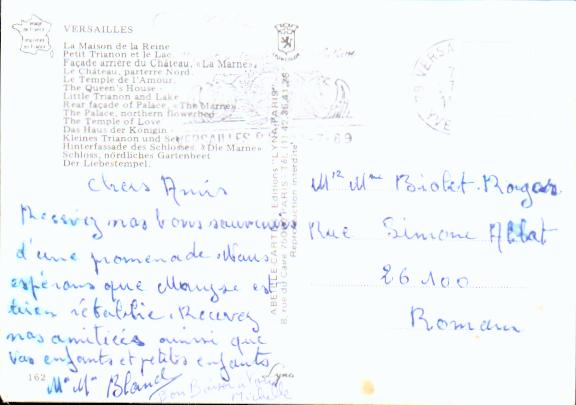 VERSAILLES
La Maison de la Reine
Petit Trianon et le Lac.
Façade arrière du Château, «La Marne»
Le Château, parterre Nord.
Le Temple de l'Amour.
The Queen's House
Little Trianon and Lake
Rear façade of Palace, «The Marne»
The Palace, northern flowerbed
The Temple of Love
Das Haus der Königin
Kleines Trianon und See
Hinterfassade des Schlosses, «Die Marne»
Schloss, nördliches Gartenbeet
Der Liebestempel.
Chers Amis
Recevez nos bons souvenirs
d'une promenade. Nous
espérons que Maryse est
bien rétablie. Recevez
nos amitiées ainsi que
vos enfants et petits enfants
Mr Mme Bland
Bon Baiser
Michelle
162
ABEILLE CARTES Editions "LYNA-PARIS"
8, rue du Caire 75002 PARIS - Tél. (1) 42.36.41.28
Reproduction interdite
Lyna
VERSAILLES
78 VERSA
YVE
Mr Mme Biolet. Rogar
Rue Simone Abbat
26 100
Romans